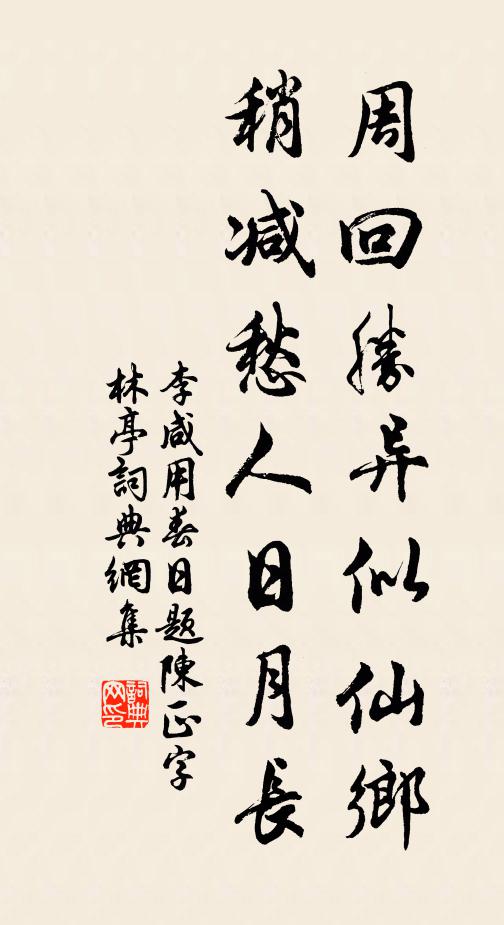 周回勝异似仙鄉
稍减愁人日月長
李咸用春日題陳正字
林亭詞典網集
詞典
网印